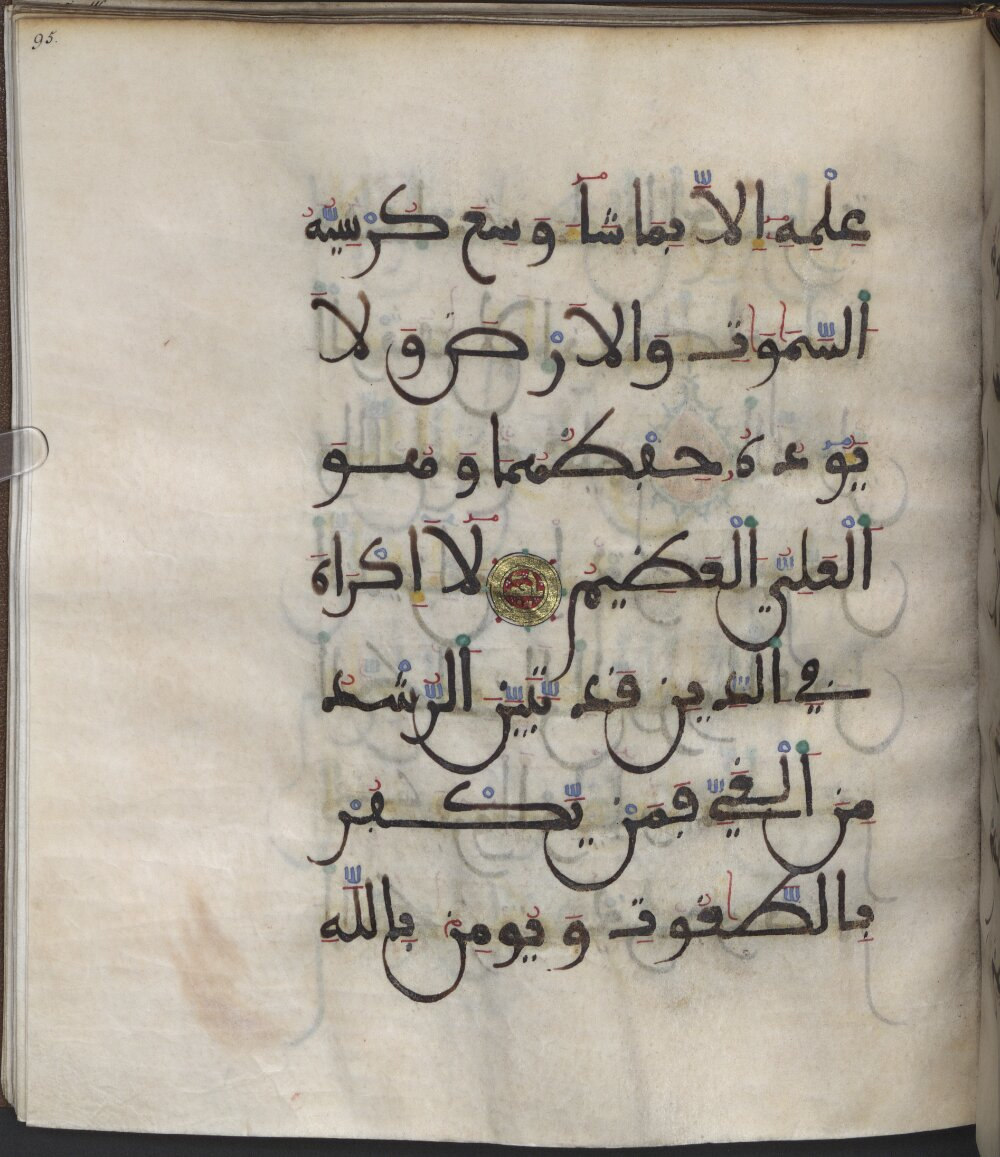 95.
عِلْمِهِ إِلاَّ بِمَا شَآ وَسِعَ كُرْسِيُّهُ
اَلسَّمَٰوَٰتِ وَالاَرْضَ وَلاَ
يَـُٔودُهُۥ حِفْظُهُمَا وَهُوَ
اَلْعَلِيُّ اَلْعَظِيمُ لَآ إِكْرَاهَ
فِي اِلدِّينِ قَد تَّبَيَّنَ اَلرُّشْدُ
مِنَ اَلْغَيِّ فَمَنْ يَّكْفُرْ
بِالطَّٰغُوتِ وَيُومِنۢ بِاللَّهِ